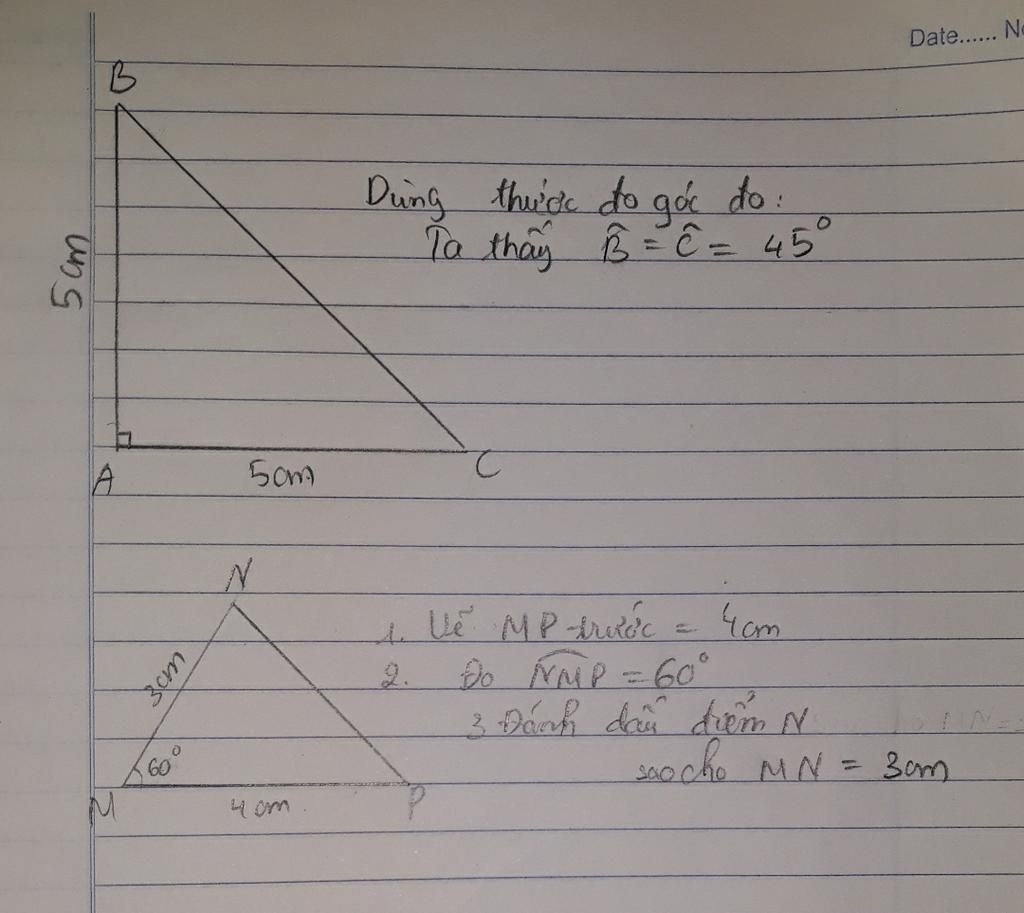 Date...... No
B
Dùng thước đo góc đo:
Ta thấy B̂ = Ĉ = 45°
5cm
A
5cm
C
N
1. Vẽ MP trước = 4cm
3cm
2. Đo N͡MP = 60°
3 Đánh dấu điểm N
60°
sao cho MN = 3cm
M
4cm
P